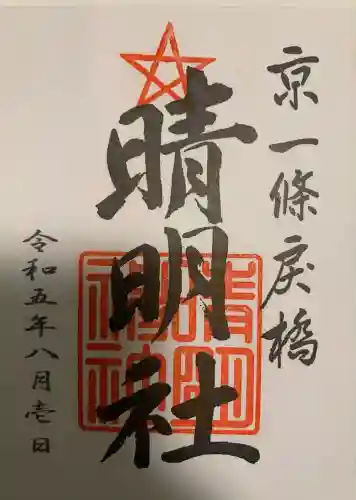 京一條戻橋
晴明社
令和五年八月壱日